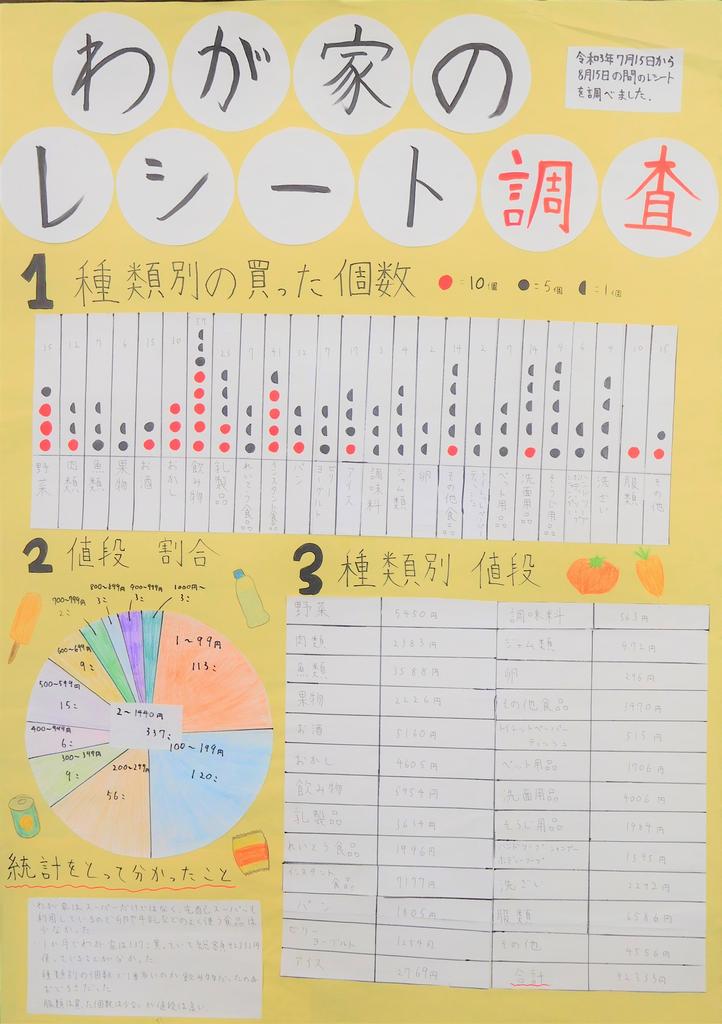 わが家の
レシート調査
令和3年7月15日から
8月15日の間のレシート
を調べました.
1 種類別の買った個数
●=10個 ●=5個 ◖=1個
35 12 9 6 15 30 57 23 7 41 12 7 17 3 4 2 14 2 7 14 9 10 15
野菜 肉類 魚類 果物 お酒 おかし 飲み物 乳製品 れいとう食品 インスタント食品 パン ゼリーヨーグルト アイス 調味料 ジャム類 卵 その他食品 ペット用品 洗面用品 そうじ用品 洗ざい 服類 その他
2 値段 割合
1~99円
113こ
100~199円
120こ
200~299円
56こ
300~399円
9こ
400~499円
6こ
500~599円
15こ
600~699円
9こ
700~799円
2こ
800~899円
3こ
900~999円
3こ
1000円~
3こ
2~1440円
337こ
3 種類別 値段
野菜 5450円 調味料 563円
肉類 2383円 ジャム類 472円
魚類 3588円 卵 296円
果物 2226円 その他食品 3470円
お酒 5160円 トイレットペーパー
ティッシュ 515円
おかし 4605円 ペット用品 1706円
飲み物 5954円 洗面用品 4006円
乳製品 3614円 そうじ用品 1984円
れいとう食品 1996円 ハンドソープ シャンプー
ボディーソープ 1395円
インスタント
食品 7177円 洗ざい 2292円
パン 1805円 服類 6586円
ゼリー
ヨーグルト 1254円 その他 4556円
アイス 2769円 合計
統計をとって分かったこと
わが家はスーパーだけではなく、
利用しているので
少なかった
種類別の個数で1番多いのが飲み物だったので
おどろきだった
服類は買った個数は少ないが値段は高い